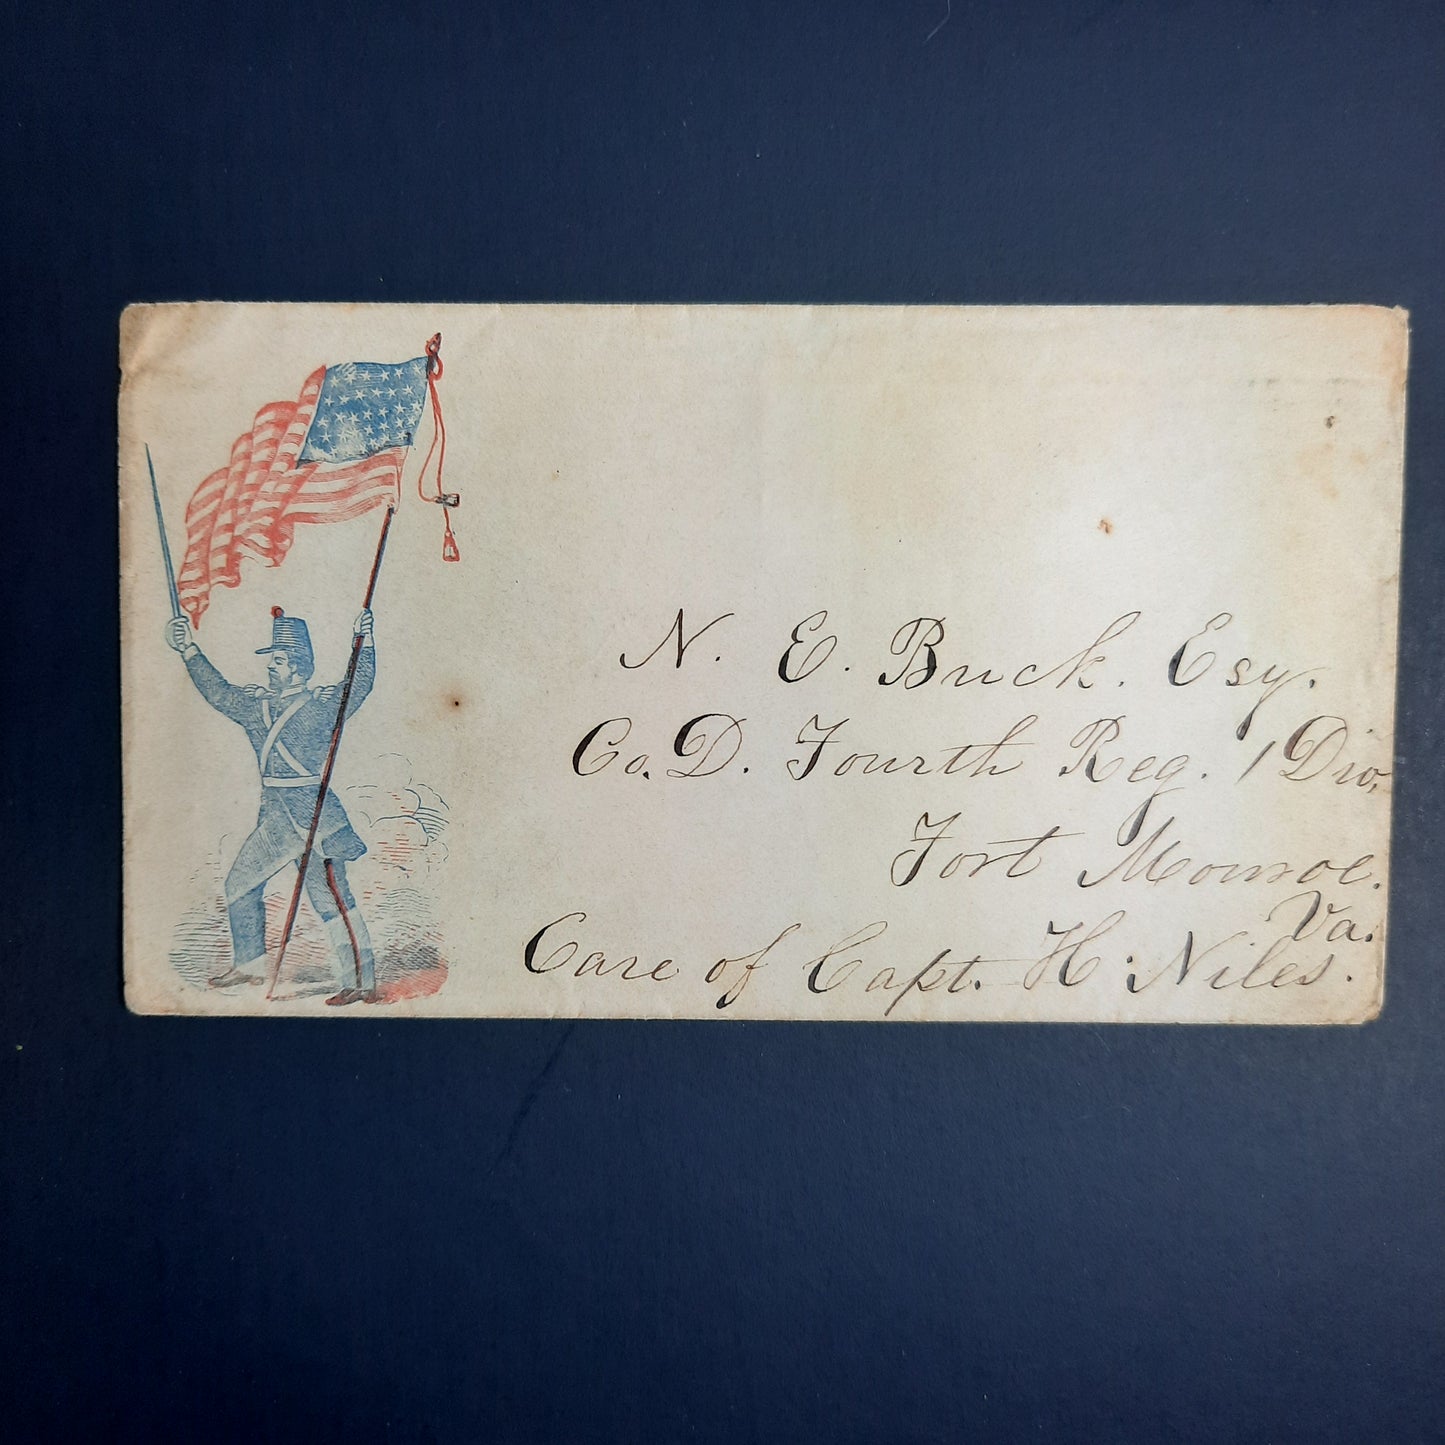 N. E. Buck. Esq.
Co. D. Fourth Reg. 1 Div,
Fort Monroe.
Va.
Care of Capt. H. Niles.